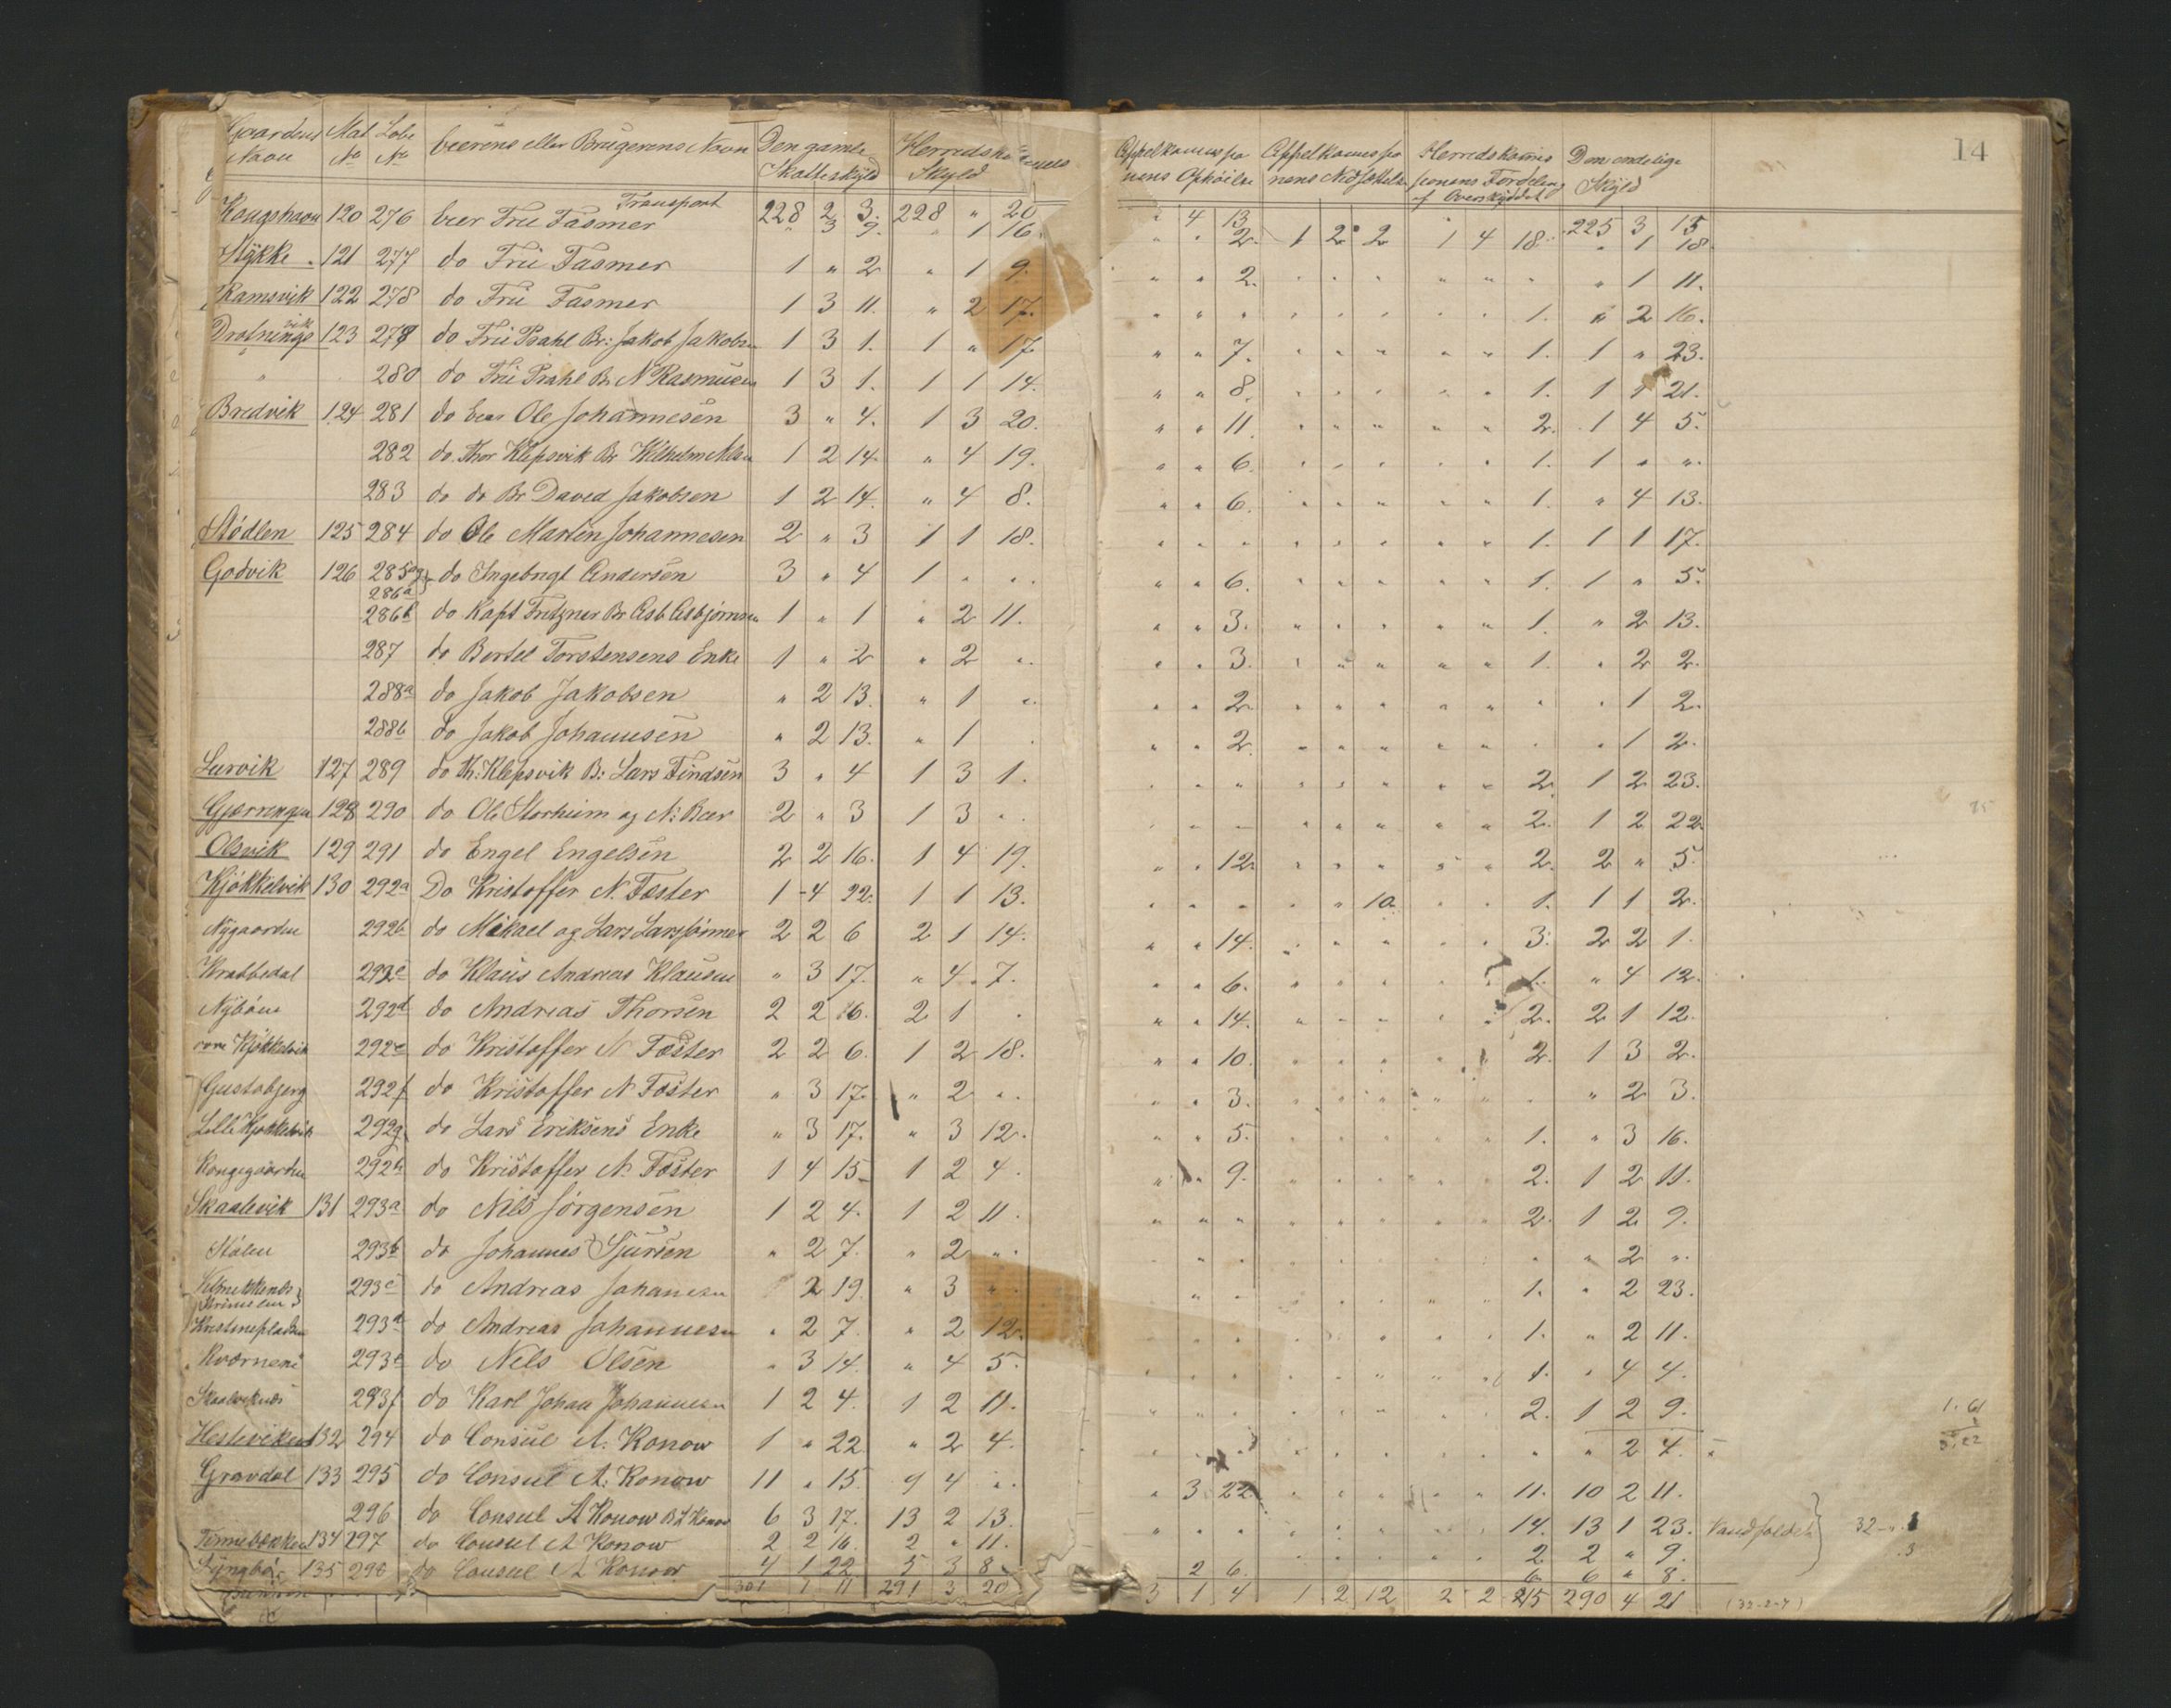 14
Gaardens Navn | Mat No | Løbe No | Eierens eller Brugerens Navn | Den gamle Skatteskyld | Herredskommis Skyld | Appelkommissionens Ophøielse | Appelkommissionens Nedsættelse | Herredskommissionens Fordeling af Overskyddet | Den endelige Skyld
Transport 228 2 3. 228 " 20 | " 4 13 | 1 2 2 | 1 4 18. | 225 3 15
Kongshavn 120 276 Eier Frü Fasmer " 3 9. " 1 16. | " " 2. | | | " 1 18.
Stykke 121 277 do Frü Fasmer 1 " 2 " 1 9. | " " 2. | " " " | " " " | " 1 11.
Ramsvik 122 278 do Frü Fasmer 1 3 11. " 2 17. | " " " | " " " | " " 1. | " 2 16.
Drotningsvik 123 279 do Frü Prahl Br: Jakob Jakobsen 1 3 1. 1 " 17 | " " 7. | " " " | " " 1. | 1 " 23.
" 280 do Frü Prahl Br N Rasmusen 1 3 1. 1 1 14. | " " 8. | " " " | " " 1. | 1 1 21.
Bredvik 124 281 do Eier Ole Johannesen 3 " 4. 1 3 20. | " " 11. | " " " | " " 2. | 1 4 5.
282 do Thor Klepsvik Br Wilhelm Nilsen 1 2 14. " 4 19. | " " 6. | " " " | " " 1. | 1 " ".
283 do do Br David Jakobsen 1 2 14. " 4 8. | " " 6. | " " " | " " 1. | " 4 13.
Stødlen 125 284 do Ole Martin Johannesen 2 " 3 1 1 18. | " " " | " " " | " " 1. | 1 1 17.
Godvik 126 285 og 286a do Ingebrigt Andersen 3 " 4 1 " " | " " 6. | " " " | " " 1. | 1 " 5.
286b do Kapt Fritzner Br Asb Asbjørnsen 1 " 1 " 2 11. | " " 3. | " " " | " " 1. | " 2 13.
287 do Bertel Torstensens Enke 1 " 2 " 2 " | " " 3. | " " " | " " 1. | " 2 2.
288a do Jakob Jakobsen " 2 13. " 1 " | " " 2 | " " " | " " " | " 1 2.
288b do Jakob Johannsen " 2 13. " 1 | " " 2 | " " " | " " " | " 1 2.
Lurvik 127 289 do Th: Klepsvik B: Lars Findsen 3 " 4 1 3 1. | " " " | " " " | " " 2. | 1 2 23.
128 290 do Ole Storheim og N: Beer 2 " 3 1 3 " | " " " | " " " | " " 2. | 1 2 22
Olsvik 129 291 do Engel Engelsen 2 2 16. 1 4 19. | " " 12. | " " " | " " 2. | 2 " 5.
Kjøkkelvik 130 292a Do Kristoffer N. Foster 1 4 22. 1 1 13. | " " " | " " 10. | " " 1. | 1 1 2.
Nygaarden 292b do Mikael og Lars 2 2 6 2 1 14. | " " 14. | " " " | " " 3. | 2 2 1.
Krabbedal 292c do Klaus Andreas Klausen " 3 17. " 4 7. | " " 6. | " " " | " " 1. | " 4 12.
292d do Andreas Thorsen 2 2 16. 2 1 | " " 14. | " " " | " " 2. | 2 1 12.
Kjøkkelvik 292e do Kristoffer N Foster 2 2 6. 1 2 18. | " " 10. | " " " | " " 2. | 1 3 2.
Gustabjerg 292f do Kristoffer N Foster " 3 17. " 2 " | " " 3. | " " " | " " " | " 2 3.
Lille Kjøkkelvik 292g do Lars Eriksens Enke " 3 17. " 3 12. | " " 5. | " " " | " " 1. | " 3 16.
Kongegaarden 292h do Kristoffer N. Foster 1 4 15 1 2 4. | " " 9. | " " " | " " 2. | 1 2 11.
Skaalevik 131 293a do Nils Jørgensen 1 2 4. 1 2 11. | " " " | " " " | " " 2. | 1 2 9.
Stølen 293b do Johannes Sjursen " 2 7. " 2 " | " " " | | | " 2 ".
293c do Andreas Johannesen 2 19. " 3 " | " " | | " " 1. | " 2 23.
Kristinepladsen 293d do Andreas Johannesen " 2 7. " 2 12. | | | " 1. | " 2 11.
293e do Nels Olsen " 3 14. " 4 5. | | | " " 1. | " 4 4.
Skaaleviknæs 293f do Karl Johan Johannesen 1 2 4. 1 2 11. | | | 2. | 1 2 9. | 1.61
Hestviken 132 294 do Consul A. Konow 1 " 22 " 2 4. | | | " " " | " 2 4.
Gravdal 133 295 do Consul A. Konow 11 " 15. 9 4 " | " 3 22. | " " " | " " 11. | 10 2 11.
296 do Consul A Konow 6 3 17. 13 2 13. | " " " | | 14. | 13 1 23. Vandfaldet 32
134 297 do Consul A Konow 2 2 16. 2 " 11. | | | 2 | 2 " 9. 3
Lyngbø 135 298 do Consul A Konow 4 1 22 5 3 8 | 2 6. | | 6. | 6 " 8.
301 1 11 291 3 20 | 3 1 4 | 1 2 12 | 2 2 15 | 290 4 21 (32-2-7)